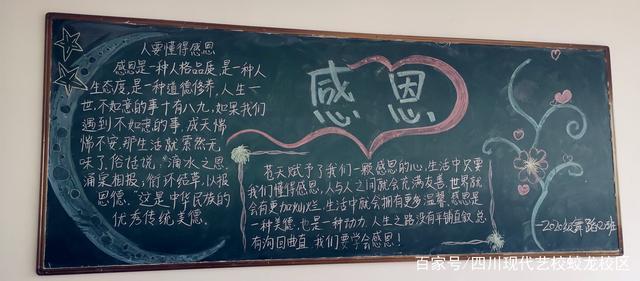 人要懂得感恩
感恩是一种人格品质,是一种人
生态度,是一种道德修养,人生一
世,不如意的事十有八九,如果我们
遇到不如意的事,成天惴
惴不安,那生活就索然无
味了,俗话说:"滴水之恩,
涌泉相报;衔环结草,以报
恩德。"这是中华民族的
优秀传统美德。
感恩
苍天赋予了我们一颗感恩的心,生活中只要
我们懂得感恩,人与人之间就会充满友善,世界就
会有更加灿烂,生活中就会拥有更多温馨,感恩是
一种美德,也是一种动力,人生之路没有平铺直叙,总
有沟回曲直,我们要学会感恩!
—2020级舞蹈2班
百家号/四川现代艺校蛟龙校区